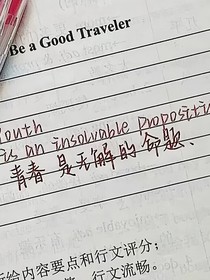 Be a Good Traveler
outh
is an insolvable propositi
青春 是无解的命题、
绘内容要点和行文评分；
行文流畅。